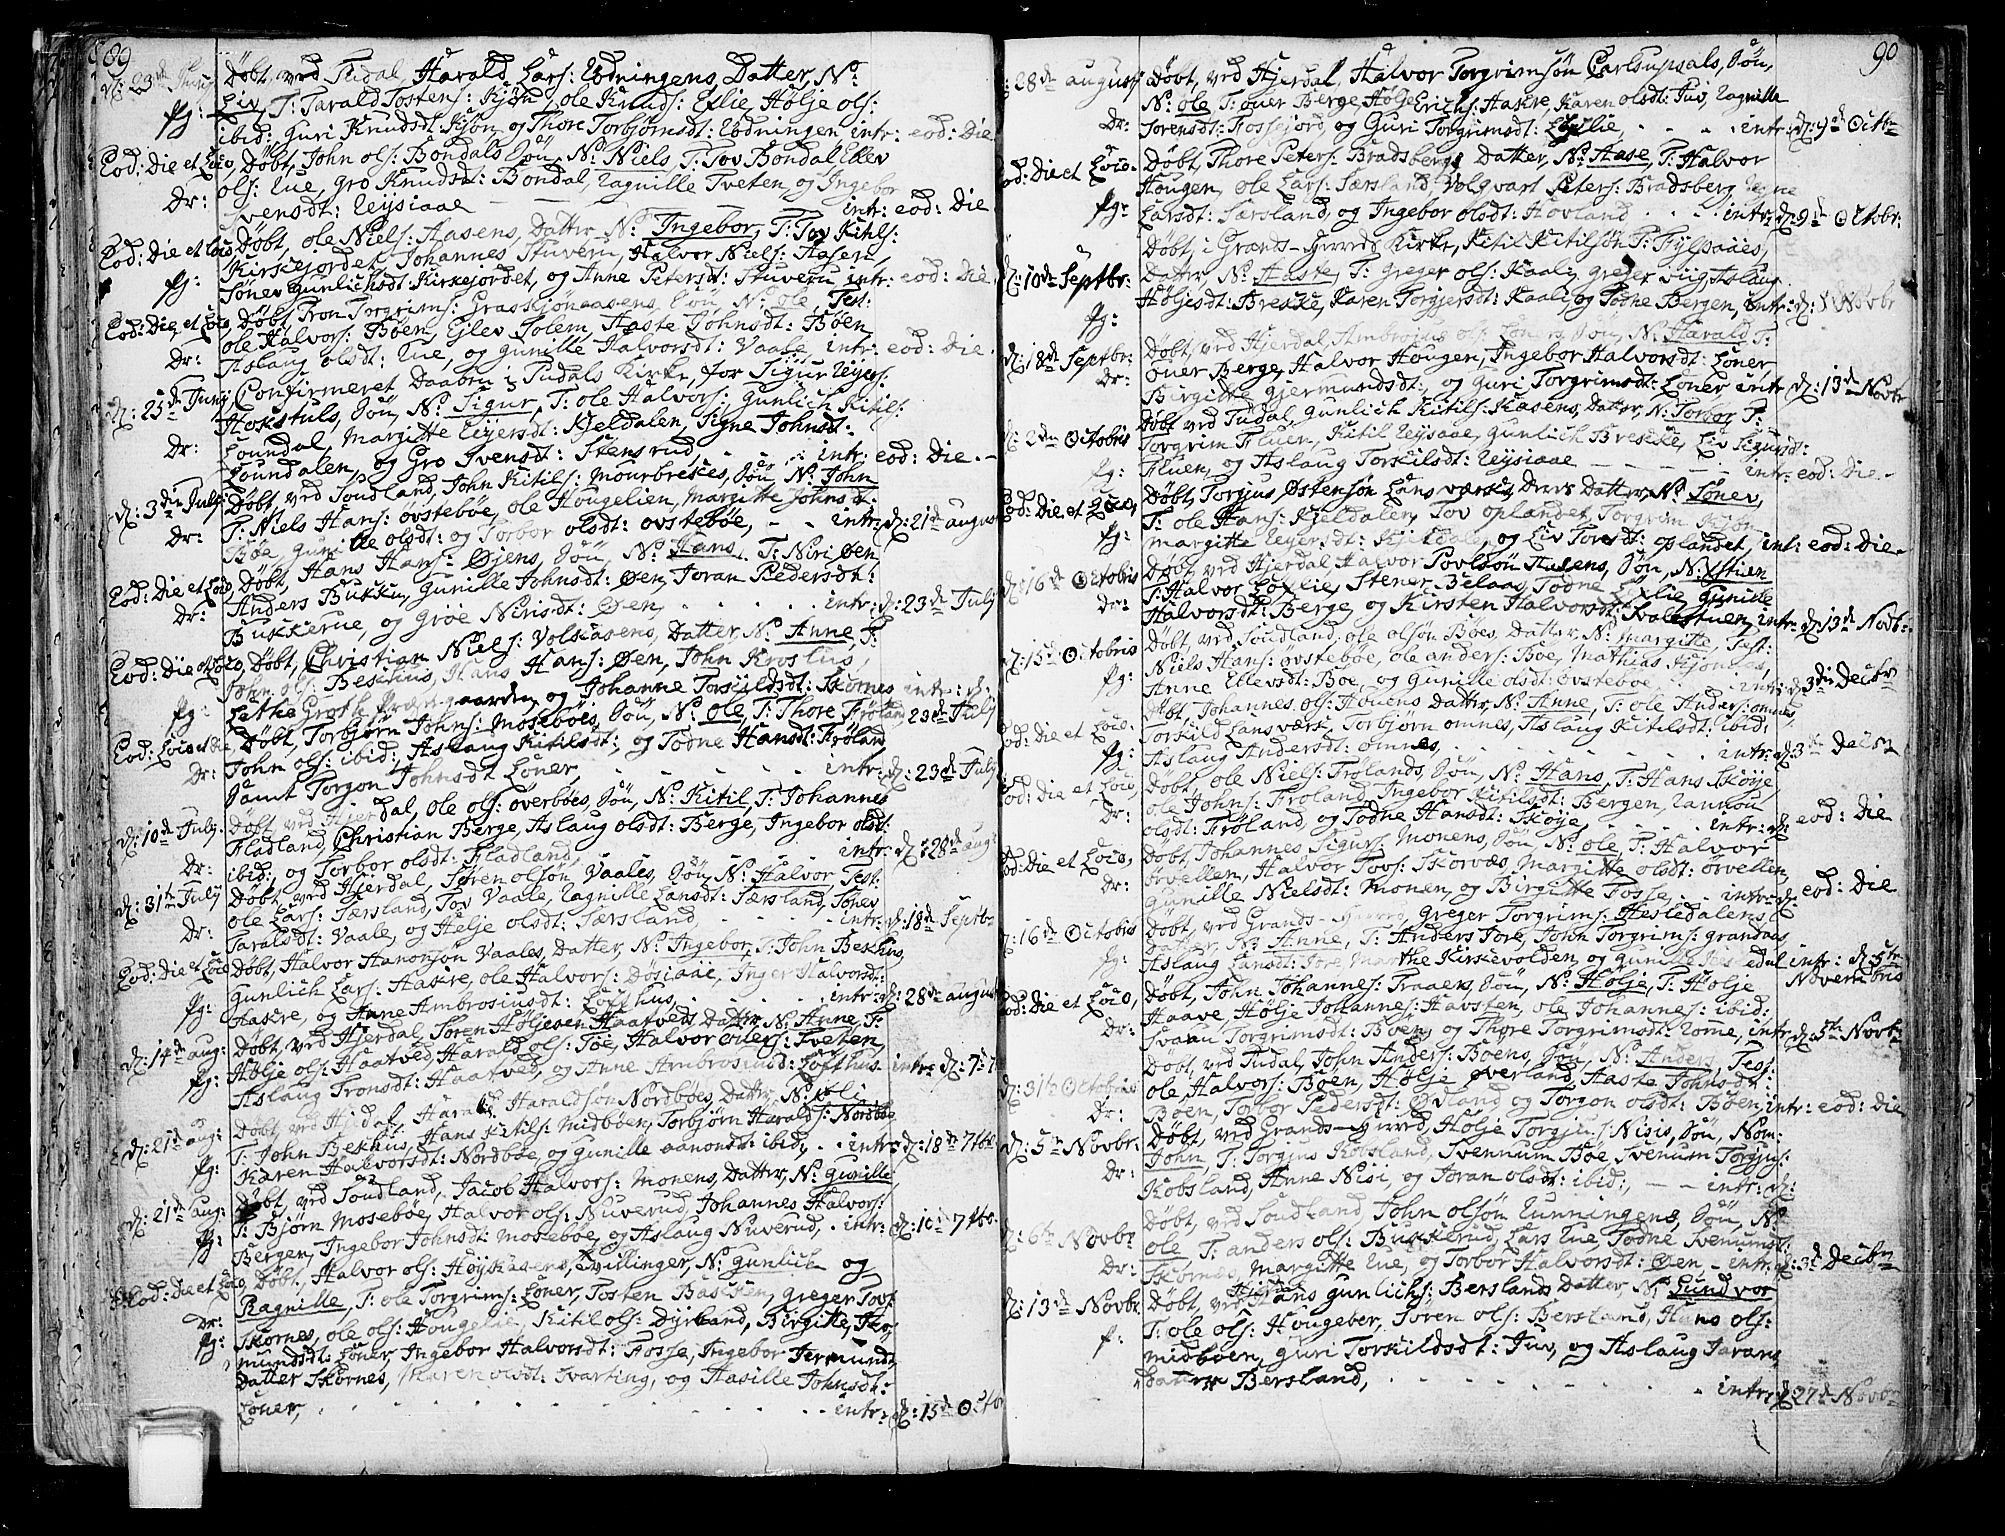 89
d: 23de Juny Døbt, ved Tudal, Harald Lars: Lodningens, Datter, No:
Liv, T: Tarald Tostens: Kjøn, ole Knuds: Exlie, Hølje ols:
pg: ibid: Guri Knudsdt: Kjøn, og Thore Torbjørnsdt: Lodningen intr: eod: Die
Eod: Die et Loco, Døbt, John ols: Bondals Søn, No: Niels, T: Tov Bondal Ellev
ols: Lue, Gro Knudsdt: Bondal, Ragnille Tveten, og Ingebor
Dr: Svensdt: Reysiaae — — intr: eod: Die
Eod: Die et loco, Døbt, ole Niels: Aasens, Datter, No: Ingebor, T: Tov Kitils:
Kirkejordet, Johannes Stuveru, Halvor Niels: Aasen,
pg: Sønev Gunlichsdt: Kirkejordet, og Anne Petersdt: Stuveru intr: eod: Die
Eod: Die et Loco, Døbt, Tron Torgrims: Graskjonaasens, Søn, No: ole, Test:
ole Halvors: Bøen, Ejlev Solem, Aaste Johnsdt: Bøen
Dr: Aslaug olsdt: Lue, og Gunille Halvorsdt: Vaale intr: eod: Die
d: 25de Juny Confirmeret Daaben i Tudals Kirke, for Sigur
Hokstuls, Søn, No: Sigur, T: ole Halvors: Gunlich Kitils:
Dr: Loundal, Margitte Leyersdt: Kjeldalen, Signe Johnsdt:
Loundalen, og Gro Svensdt: Stensrud, . . . intr: eod: Die . —
d: 3die July Døbt, ved Soudland, John Kitils: Mourbrekes, Søn, No: John
T: Niels Hans: øvstebøe, ole Hougelien, Margitte Johnsdt:
Dr: Bøe, Guri olsdt: og Torbor olsdt: øvstebøe, — — intr: d: 21de august
Eod: Die et Loco, Døbt, Hans Hans: Øjens, Søn, No: Hans, T: Niri Øen,
Anders Bukku, Gunille Johnsdt: Øen, Joran Pedersdt:
Dr: Bukkerue, og Grøe Nirisdt: Øen, . . . intr: d: 23de July
Eod: Die et Loco, Døbt, Christian Niels: Volsaasens, Datter, No: Anne, T:
John ols: Bekhus, Hans Hans: Øen, John Kroslus,
pg: Lethe Groth Præstegaarden, og Johanne Torkildsdt: Skornes intr: d:
23de July
Eod: Loco et die Døbt, Torbjørn Johns: Mosebøes, Søn, No: ole, T: Thore Frøland,
John ols: ibid: Aslaug Kitilsdt: og Todne Hansdt: Frøland
Dr: Samt Torgon Johnsdt: Løner, . . . intr: d: 23de July
d: 10de July. Døbt, ved Hjerdal, ole ols: øverbøes, Søn, No: Kitil, T: Johannes
Fladland, Christian Berge, Aslaug olsdt: Berge, Ingebor olsdt:
Dr: ibid: og Torbor olsdt: Fladland, intr: d: 28de aug:
d: 31te July Døbt, ved Hjerdal, Søren olsøn Vaales, Søn, No: Halvor, Test:
ole Lars: Særsland, Tov Vaale, Ragnille Larsdt: Særsland, Sønev
Dr: Taralsdt: Vaale, og Helje olsdt: Særsland, intr: d: 18de Septb:
Eod: Die et Loco Døbt, Halvor Aanonsøn Vaales, Datter, No: Ingebor, T: John Bekhus,
Gunlich Lars: Aakre, ole Halvors: Døsiaae, Inger Halvorsdt:
pg: Aakre, og Anne Ambrosiusdt: Lofthus, . . . intr: d: 28de august
d: 14de aug: Døbt, ved Hjerdal, Søren Høljesen Haatveds, Datter, No: Anne, T:
Hølje ols: Haatved, Harald ols: Søe, Halvor olsens: Tveten,
pg: Aslaug Tronsdt: Haatved, og Anne Ambrosiusd: Lofthus intr: d: 7:
d: 21de aug: Døbt, ved Hjerdal, Harald Haraldsøn Nordbøes, Datter, No: oli
T: John Bekhus, Hans Kitils: Midbøen, Torbjørn Haralds: Nordbøe
pg: Karen Halvorsdt: Nordbøe og Gunille aanonsdt: ibid, . . intr: d: 18de 7tbr:
d: 21de aug: Døbt, ved Soudland, Jacob Halvors: Monens, Datter, No: Gunille
T: Bjørn Mosebøe, Halvor ols: Nuverud, Johannes Halvors:
pg: Bergen, Ingebor Johnsdt: Mosebøe, og Aslaug Nuverud, . intr: d: 10de 7tbr.
Eod: Die et Loco, Døbt, Halvor ols: Høyskasens, Tvillinger, No: Gunlich og
Ragnille, T: ole Torgrims: Løner, Tosten Bakken, Greger Tovs:
Dr: pg: Skornes, ole ols: Hougelie, Kitil ols: Dyrland, Birgitte, Ho-
mundsdt: Løner, Ingebor Halvorsdt: Fosse, Ingebor Jermunds
Datter Skornes, Maren olsdt: Svarting, og Aasille Johnsdt:
Løner, . . . intr: d: 15de Octbr:
90
28de august Døbt, ved Hjerdal, Halvor Torgrimsøn Carlsupsals, Søn,
No: ole T: øuer Berge, Hølje Erichs: Aakre, Karen olsdt: Juv, Ragnille
Dr: Sørensdt: Fossejord, og Guri Torgrimsdt: Exlie, . . . intr: d: 9de Octbr
Eod: Die et Loco. Døbt, Thore Peters: Bradsbergs, Datter, No: Aase, T: Halvor
Hougen, ole Lars: Særsland, Volqvart Peters: Bradsberg, Signe
pg: Larsdt: Særsland, og Ingebor olsdt: Hovland . . . intr: d: 9de Octobr:
d: 10de Septbr: Døbt, i Grands-Herreds Kirke, Kitil Kitilsøn
Datter, No: Aaste, T: Greger ols: Kaali, Greger Liig, Aslaug
pg: Høljesdt: Breske, Karen Torgjersdt: Kaali, og Todne Bergen, intr: d: Novbr
d: 18de Septbr: Døbt, ved Hjerdal, Ambrosius ols: Løners Søn, No: Harald T:
øuer Berge, Halvor Hougen, Ingebor Halvorsdt: Løner,
Dr: Birgitte Gjermundsdt:, og Guri Torgrimsdt: Løner intr: d: 13de Novbr
d: 2den Octobris Døbt, ved Tudal, Gunlich Kitils: Kasens, Datter, No: Torbor, T:
Torgrim Fluen, Kitil Reysiaae, Gunlich Breske, Liv Sigursdt:
pg: Fluen, og Aslaug Torkilsdt: Reysiaae — — intr: eod: Die —
Eod: Die et Loco, Døbt, Torjus Østensøn Landsværks, Datter, No: Sønev,
T: ole Hans: Kjeldalen, Tov oplandet, Torgrim Kjøn,
pg: Margitte Leyersdt: Kjeldal, og Liv Toresdt: oplandet, int: eod: Die —
d: 16de Octobris Døbt, ved Hjerdal, Halvor Povlsøn Aasens, Søn, No: Stien
T: Halvor Exlie, Stener Belaas, Todne Exlie, Gunille
Dr: Halvorsdt: Berge, og Kirsten Halvorsdt: Svalestuen, intr: d: 13de Novb:
d: 15de Octobris Døbt, ved Soudland, ole olsøn Bøes, Datter, No: Margitte, Test:
Niels Hans: øvstebøe, ole anders: Bøe, Mathias Hjonnes,
pg: Anne Ellevsdt: Bøe, og Gunille olsdt: øvstebøe . intr: d: 3die Decbr
Eod: Die et Loco. Døbt, Johannes ols: Houens Datter, No: Anne, T: ole Anders: omnes,
Torkild Lansværk, Torbjørn omnes, Aslaug Kitilsdt: ibid:
pg: Aslaug Andersdt: omnes, . . . intr: d: 3die Decbr
Eod: Die et Loco, Døbt, ole Niels: Frølands, Søn, No: Hans, T: Hans Skøye,
ole Johns: Frøland, Ingebor Kitilsdt: Bergen, Rannou
Dr: olsdt: Frøland, og Todne Hansdt: Skøye, . . intr: d: eod: Die
Eod: Die et Loco, Døbt, Johannes Sigurs: Monens, Søn, No: ole T: Halvor
ørvellen, Halvor Tovs: Skorvæs, Margitte olsdt: ørvellen,
Dr: Gunille Nielsdt: Monen, og Birgitte Fosse, . intr: d: eod: Die
d: 16de Octobris Døbt, ved Grands-Herred, Greger Torgrims: Hesledalens,
Datter, No: Anne, T: Anders Jore, John Torgrims: grandaas
pg: Aslaug Larsdt: Jore, Marthe Kirkevolden, og Gunille Hesledal intr: d: 5te
Novembris
Eod: Die et Loco, Døbt, John Johannes: Traaens, Søn, No: Hølje, T: Hølje
Haave, Hølje Johannes: Havsten, ole Johannes: ibid:
Dr: Svanu Torgrimsdt: Bøen, og Thore Torgrimsdt: Rome, intr: d: 5te Novb:
d: 31te Octobris Døbt, ved Tudal, John Anders: Bøens, Søn, No: Anders, Test:
ole Halvors: Bøen, Hølje øverland, Aaste Johnsdt:
Dr: Bøen, Torbor Pedersdt: Øvland, og Torgon olsdt: Bøen, intr: eod: Die
d: 5te Novbr: Døbt, ved Grands-Herred, Hølje Torgjus: Nisis, Søn, Nom:
John, T: Torgjus Kobsland, Svennum Bøe, Svenum Torgjus:
Dr: Kobsland, Anne Nisi, og Joran olsdt: ibid:, — — intr: d:
d: 6te Novbr Døbt, ved Soudland, John olsøn Runningens, Søn, No:
ole T: anders ols: Bukkerud, Lars Lue, Todne Svenumsdt:
Dr: Skornæs, Margitte Lue, og Torbor Halvorsdt: Øen, . intr: d: 3de Decbr
d: 13de Novbr. Døbt, ved Hjerdal Hans Gunlichs: Berslands Datter, No: Gundvor
T: ole ols: Hougeber, Søren ols: Bersland, Hans ols:
p: Midbøen, Guri Torkildsdt: Juv, og Aslaug Jarans
Datter Bersland, . . . intr: d: 27de Novbr